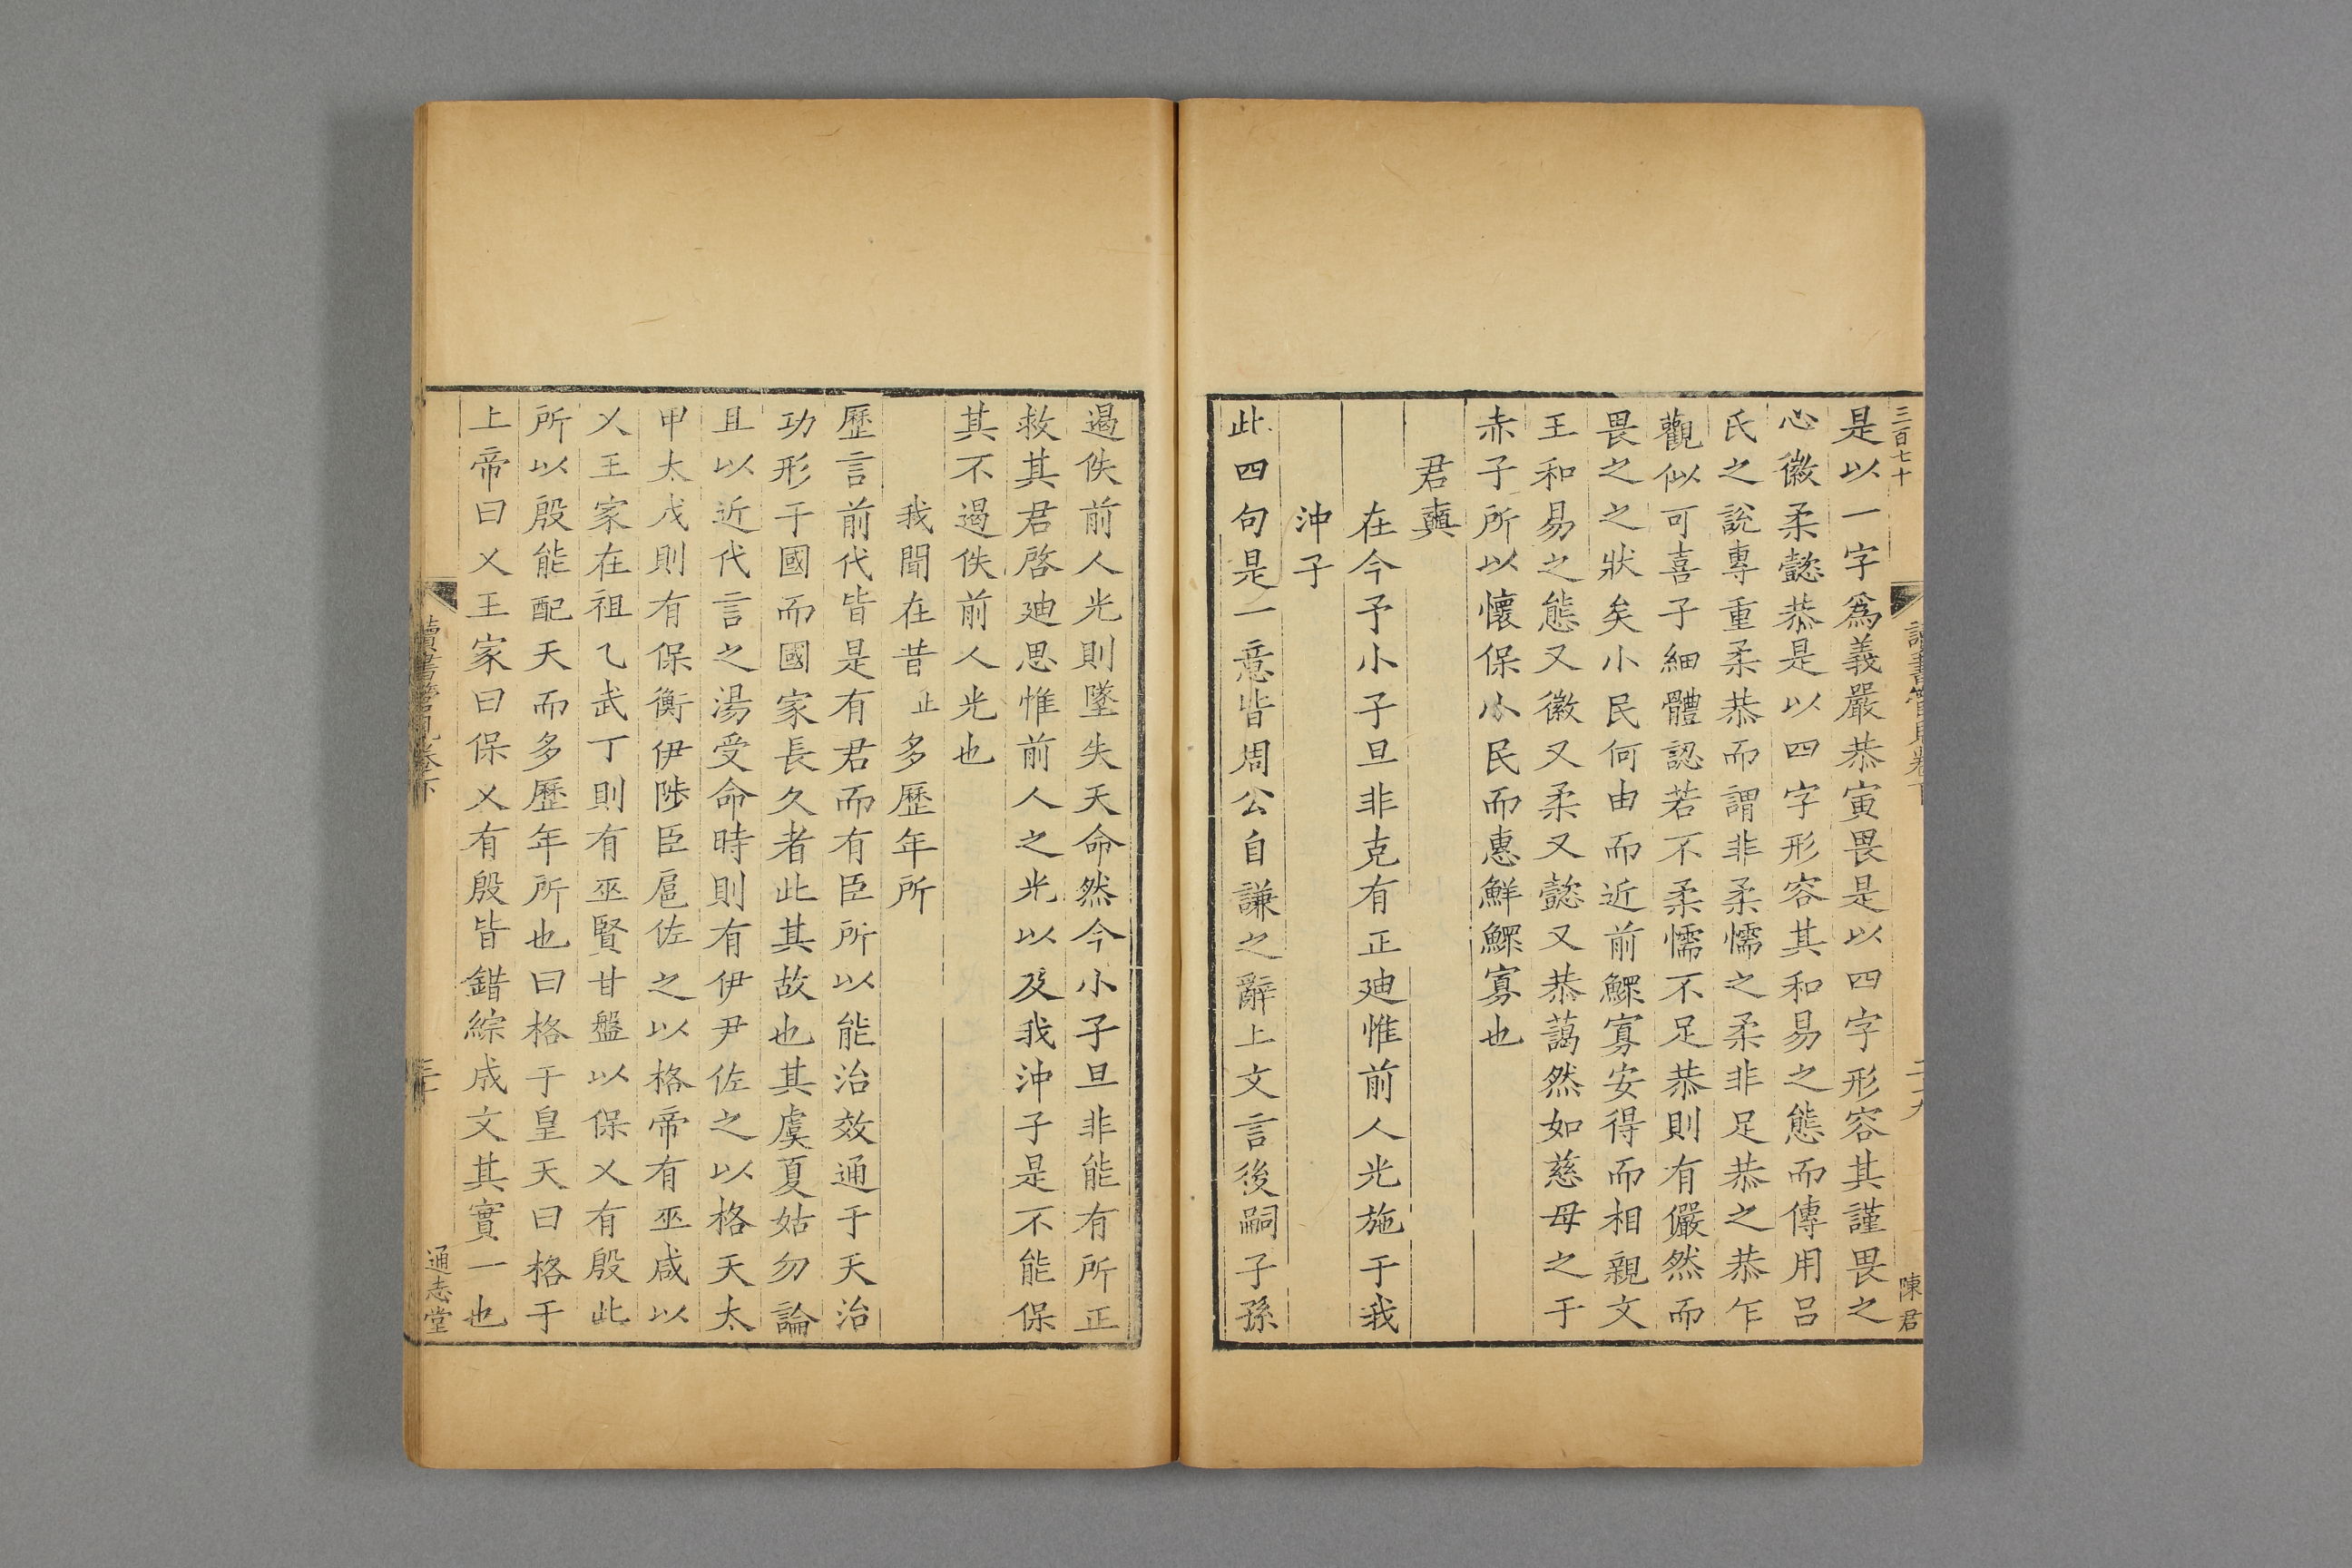 三百七十
陳君
是以一字爲義嚴恭寅畏是以四字形容其謹畏之
心徽柔懿恭是以四字形容其和易之態而傳用呂
氏之說專重柔恭而謂非柔懦之柔非足恭之恭乍
觀似可喜子細體認若不柔懦不足恭則有儼然而
畏之之狀矣小民何由而近前鰥寡安得而相親文
王和易之態又徽又柔又懿又恭藹然如慈母之于
赤子所以懷保小民而惠鮮鰥寡也
君奭
在今予小子旦非克有正迪惟前人光施于我
沖子
此四句是一意皆周公自謙之辭上文言後嗣子孫
遏佚前人光則墜失天命然今小子旦非能有所正
救其君啓迪思惟前人之光以及我沖子是不能保
其不遏佚前人光也
我聞在昔止多歷年所
歷言前代皆是有君而有臣所以能治效通于天治
功形于國而國家長久者此其故也其虞夏姑勿論
且以近代言之湯受命時則有伊尹佐之以格天太
甲太戊則有保衡伊陟臣扈佐之以格帝有巫咸以
乂王家在祖乙武丁則有巫賢甘盤以保乂有殷此
所以殷能配天而多歷年所也曰格于皇天曰格于
上帝曰乂王家曰保乂有殷皆錯綜成文其實一也
讀書管見卷下
三十
通志堂